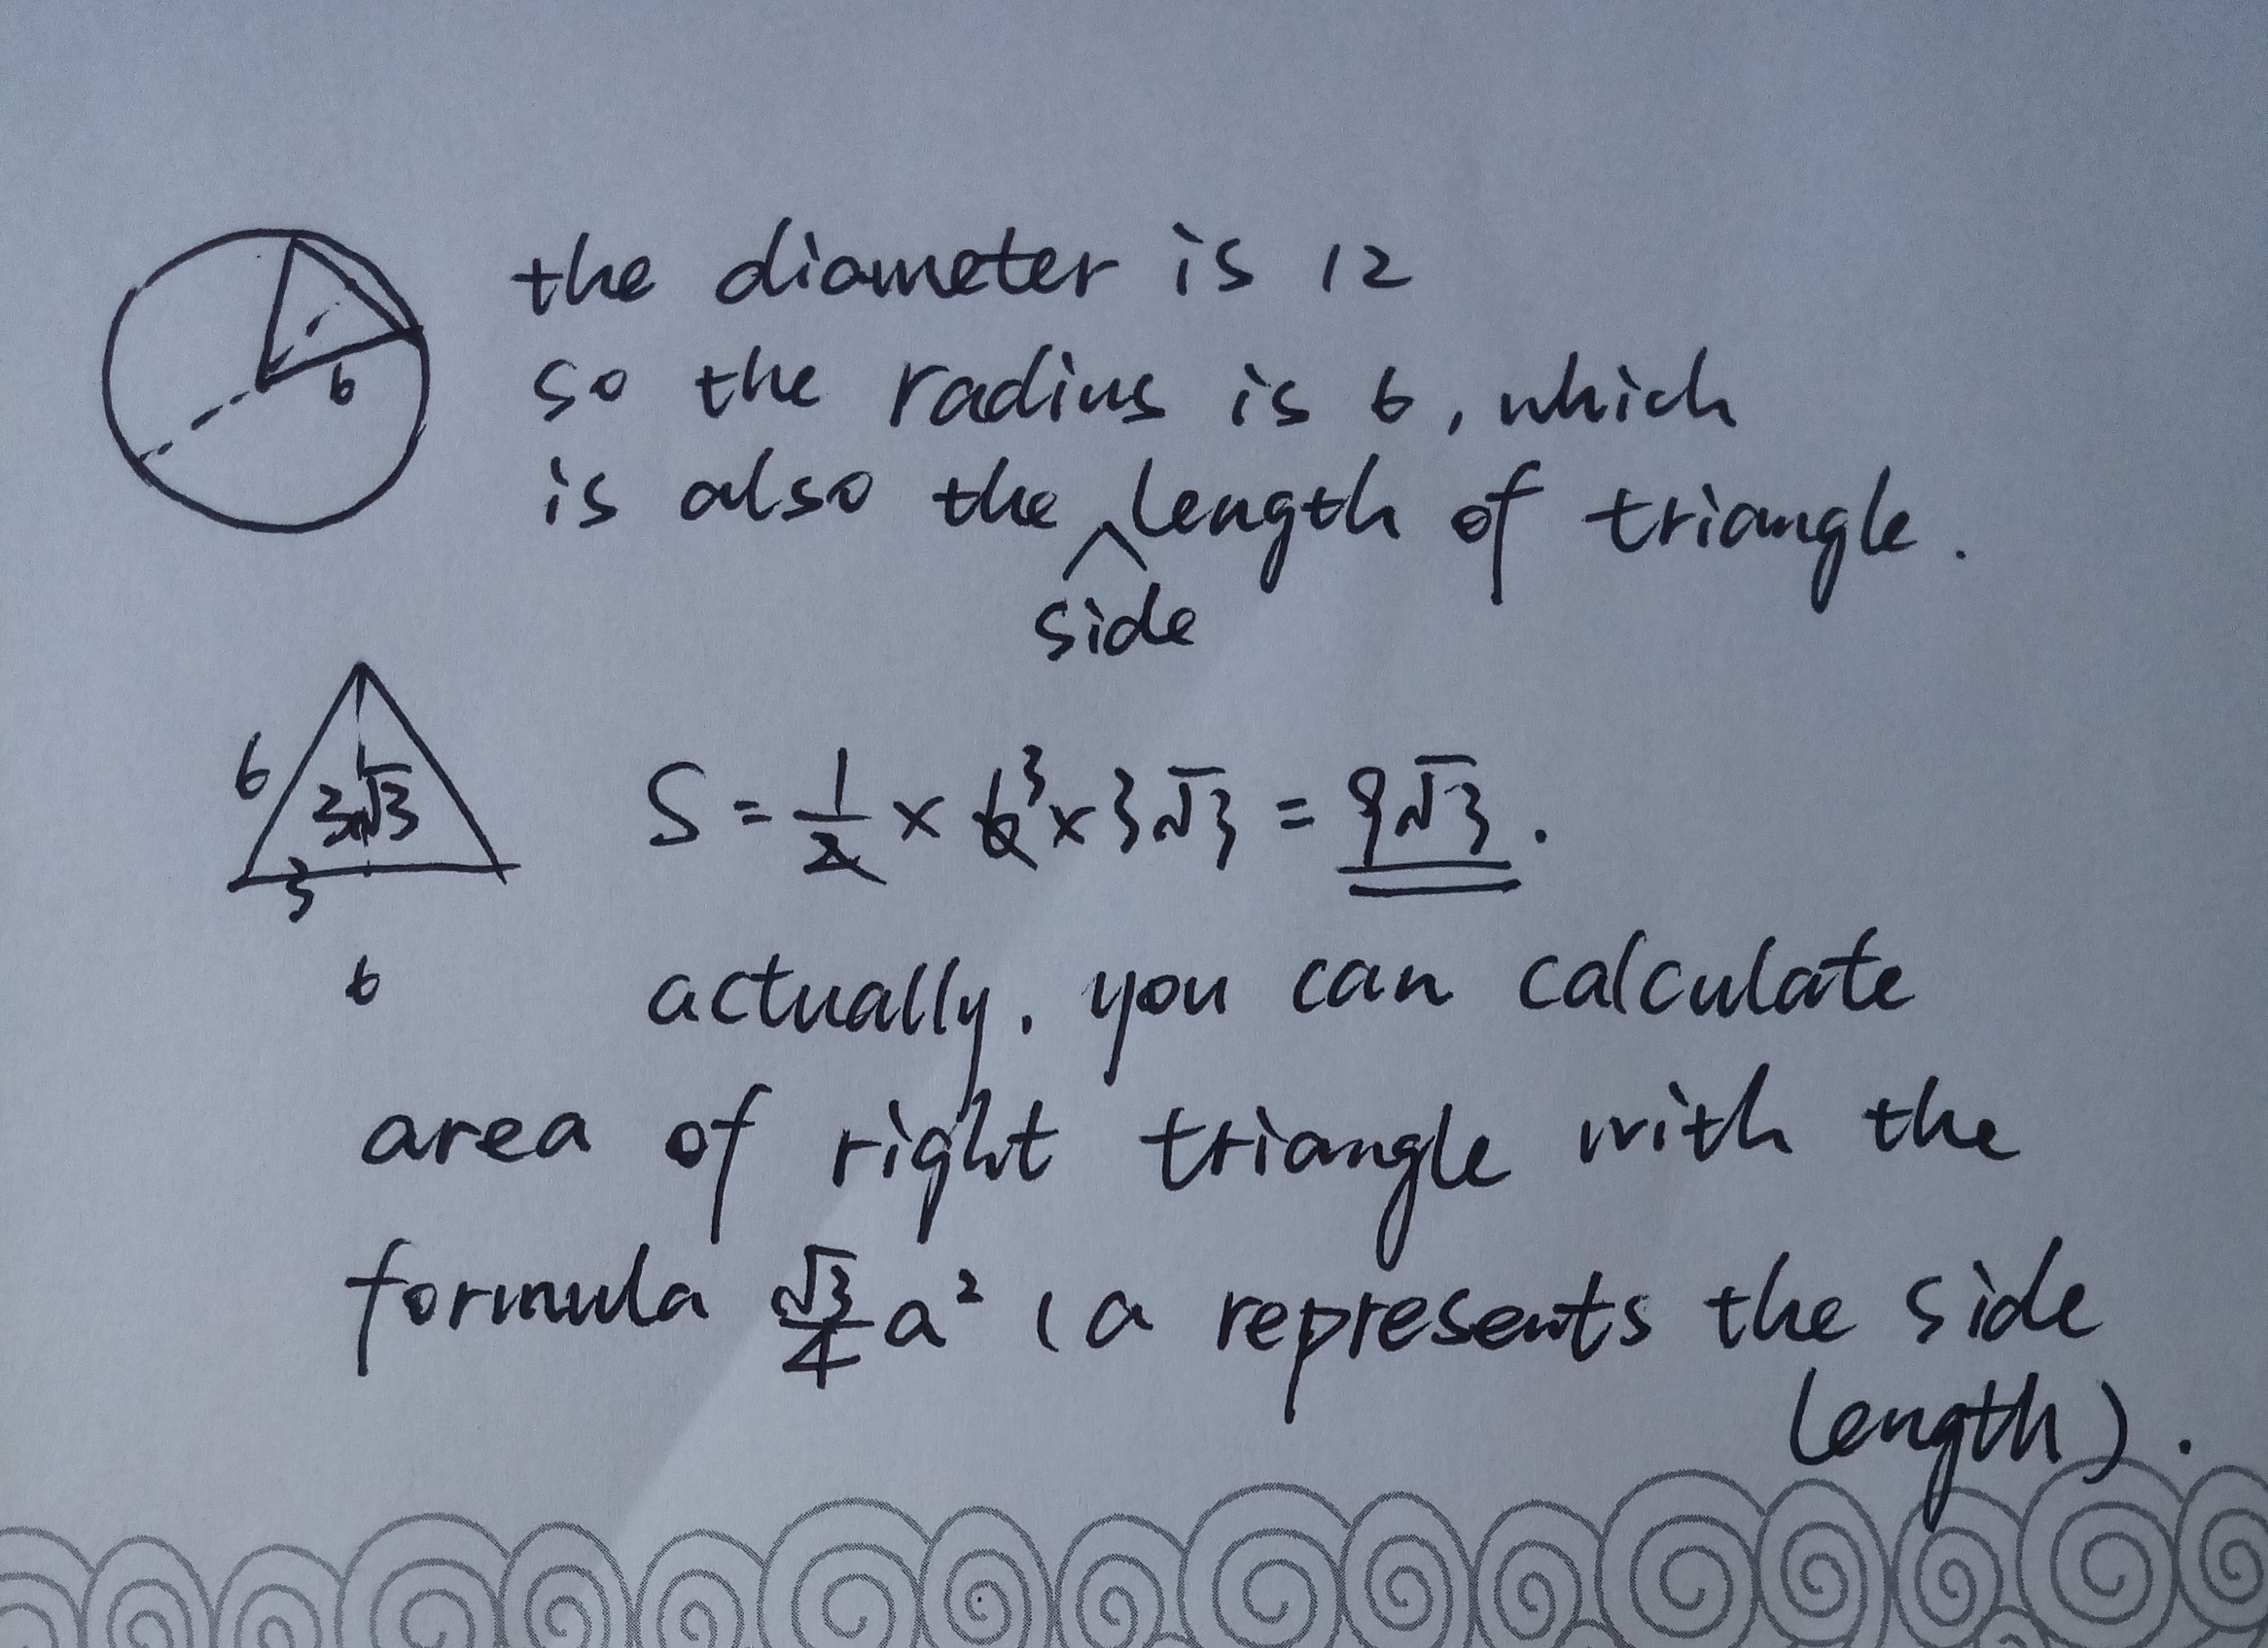 the diameter is 12
6
so the radius is 6, which
is also the length of triangle.
side
6
3√3
3
S = 1/2 × 6³ × 3√3 = 9√3.
6
actually, you can calculate
area of right triangle with the
formula √3/4 a² (a represents the side
length).